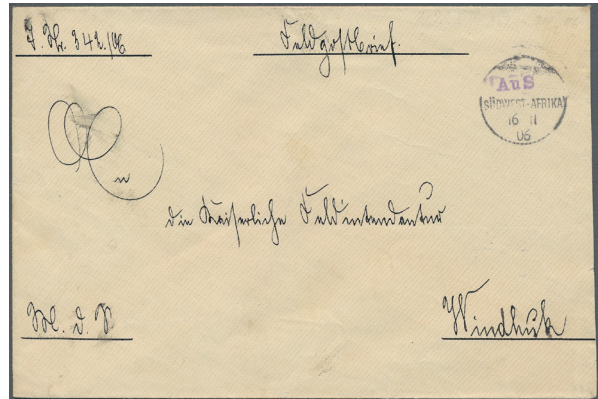 J. Nr. 342./06
Feldpostbrief.
Aus
SÜDWEST-AFRIKA
16 11
06
An
die Kaiserliche Feldintendantur
M. d. P
Windhuk